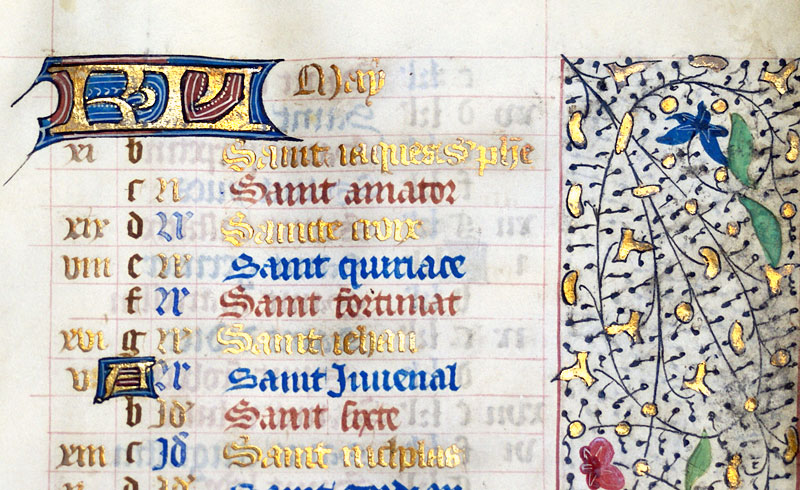 KL May
xi b Saint iaques S phe
c N Saint amator
xix d N Saincte croix
viii e N Saint quiriace
f N Saint fortunat
xvi g N Saint iehan
v A N Saint Juuenal
b Id Saint sixte
xiii c Id Saint nicholas
d Id Saint